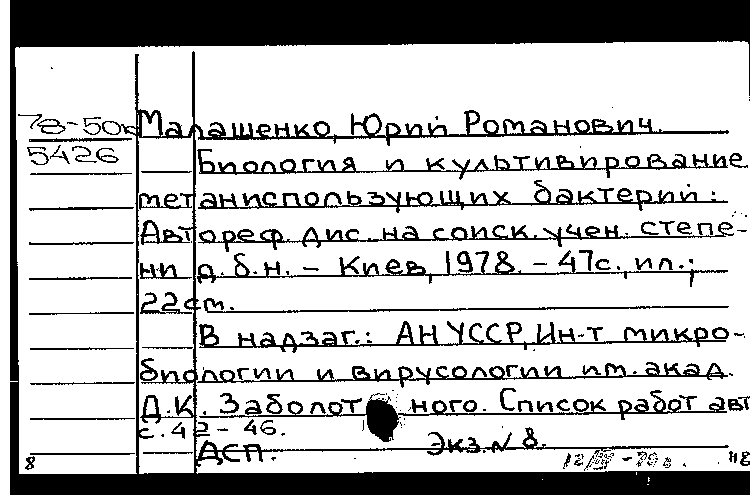 78-50к
5426
Малашенко, Юрий Романович.
Биология и культивирование
метаниспользующих бактерий:
Автореф. дис. на соиск. учен. степе-
ни д.б.н. - Киев, 1978. - 47с., ил.;
22см.
В надзаг.: АН УССР, Ин-т микро-
биологии и вирусологии им. акад.
Д.К. Заболотного. Список работ авт
с. 42-46.
ДСП. Экз. N 8.
8